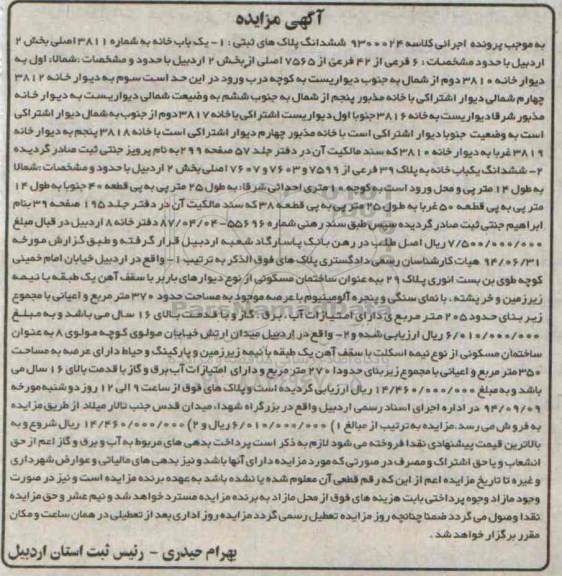 آگهی مزایده
به موجب پرونده اجرائی کلاسه ۹۳۰۰۰۲۴ ششدانگ پلاک های ثبتی : ۱- یک باب خانه به شماره ۳۸۱۱ اصلی بخش ۲
اردبیل با حدود مشخصات : ۶ فرعی از ۴۲ فرعی از ۷۵۶۵ اصلی از بخش ۲ اردبیل با حدود و مشخصات :شمالا: اول به
دیوار خانه ۳۸۱۰ دوم از شمال به جنوب دیواریست به کوچه درب ورود در این حد است سوم به دیوار خانه ۳۸۱۲
چهارم شمالی دیوار اشتراکی با خانه مذبور پنجم از شمال به جنوب ششم به وضیعت شمالی دیواریست به دیوار خانه
مذبور شرقا دیواریست به خانه ۳۸۱۶ جنوبا اول دیواریست اشتراکی با خانه ۳۸۱۷ دوم از جنوب به شمال دیوار اشتراکی
است به وضعیت جنوبا دیوار اشتراکی است با خانه مذبور چهارم دیوار اشتراکی است با خانه ۳۸۱۸ پنجم به دیوار خانه
۳۸۱۹ غربا به دیوار خانه ۳۸۱۰ که سند مالکیت آن در دفتر جلد ۵۷ صفحه ۲۹۹ به نام پرویز جنتی ثبت صادر گردیده
۲- ششدانگ یکباب خانه به پلاک ۳۹ فرعی از ۷۵۹۹ و ۷۶۰۳ و ۷۶۰۷ اصلی بخش ۲ اردبیل با حدود و مشخصات :شمالا
به طول ۱۴ متر پی و محل ورود است به کوچه ۱۰ متری احداثی شرقا: به طول ۲۵ متر پی به پی قطعه ۴۰ جنوبا به طول ۱۴
متر پی به پی قطعه ۵۰ غربا به طول ۲۵ متر پی به پی قطعه ۳۸ که سند مالکیت آن در دفتر جلد ۱۹۵ صفحه ۳۹ بنام
ابراهیم جنتی ثبت صادر گردیده سپس طبق سند رهنی شماره ۵۵۶۹۶-۸۷/۰۴/۰۴ دفتر خانه ۸ اردبیل در قبال مبلغ
۷/۵۰۰/۰۰۰/۰۰۰ ریال اصل طلب در رهن بانک پاسارگاد شعبه اردبیل قرار گرفته و طبق گزارش مورخه
۹۴/۰۶/۳۱ هیات کارشناسان رسمی دادگستری پلاک های فوق الذکر به ترتیب ۱- واقع در اردبیل خیابان امام خمینی
کوچه طوی بن بست انوری پلاک ۲۹ به عنوان ساختمان مسکونی از نوع دیوارهای باربر با سقف آهن یک طبقه با نیمه
زیرزمین و خرپشته ، با نمای سنگی و پنجره آلومینیوم با عرصه موجود به مساحت حدود ۳۷۰ متر مربع و اعیانی با مجموع
زیر بنای حدود ۲۰۵ متر مربع ی دارای امتیازات آب ، برق ، گاز و با قدمت بالای ۱۶ سال می باشد و به مبلغ
۶/۰۱۰/۰۰۰/۰۰۰ ریال ارزیابی شده و ۲- واقع در اردبیل میدان ارتش خیابان مولوی کوچه مولوی ۸ به عنوان
ساختمان مسکونی از نوع نیمه اسکلت با سقف آهن یک طبقه با نیمه زیرزمین و پارکینگ و حیاط دارای عرصه به مساحت
۳۵۰ متر مربع و اعیانی با مجموع زیر بنای حدودا ۲۷۰ متر مربع و دارای امتیازات آب برق و گاز با قدمت بالای ۱۶ سال می
باشد و به مبلغ ۱۴/۴۶۰/۰۰۰/۰۰۰ ریال ارزیابی گردیده است و پلاک های فوق از ساعت ۹ الی ۱۲ روز دو شنبه مورخه
۹۴/۰۹/۰۹ در اداره اجرای اسناد رسمی اردبیل واقع در بزرگراه شهدا، میدان قدس جنب تالار میلاد از طریق مزایده
به فروش می رسد. مزایده به ترتیب از مبالغ ۱) ۶/۰۱۰/۰۰۰/۰۰۰ ریال و ۲) ۱۴/۴۶۰/۰۰۰/۰۰۰ ریال شروع و به
بالاترین قیمت پیشنهادی نقدا فروخته می شود لازم به ذکر است پرداخت بدهی های مربوط به آب و برق و گاز اعم از حق
انشعاب و یا حق اشتراک و مصرف در صورتی که مورد مزایده دارای آنها باشد و نیز بدهی های مالیاتی و عوارض شهرداری
و غیره تا تاریخ مزایده اعم از این که رقم قطعی آن معلوم شده یا نشده باشد به عهده برنده مزایده است و نیز در صورت
وجود مازاد وجوه پرداختی بابت هزینه های فوق از محل مازاد به برنده مزایده مسترد خواهد شد و نیم عشر و حق مزایده
نقدا وصول می گردد ضمنا چنانچه روز مزایده تعطیل رسمی گردد مزایده روز اداری بعد از تعطیلی در همان ساعت و مکان
مقرر برگزار خواهد شد .
بهرام حیدری - رئیس ثبت استان اردبیل